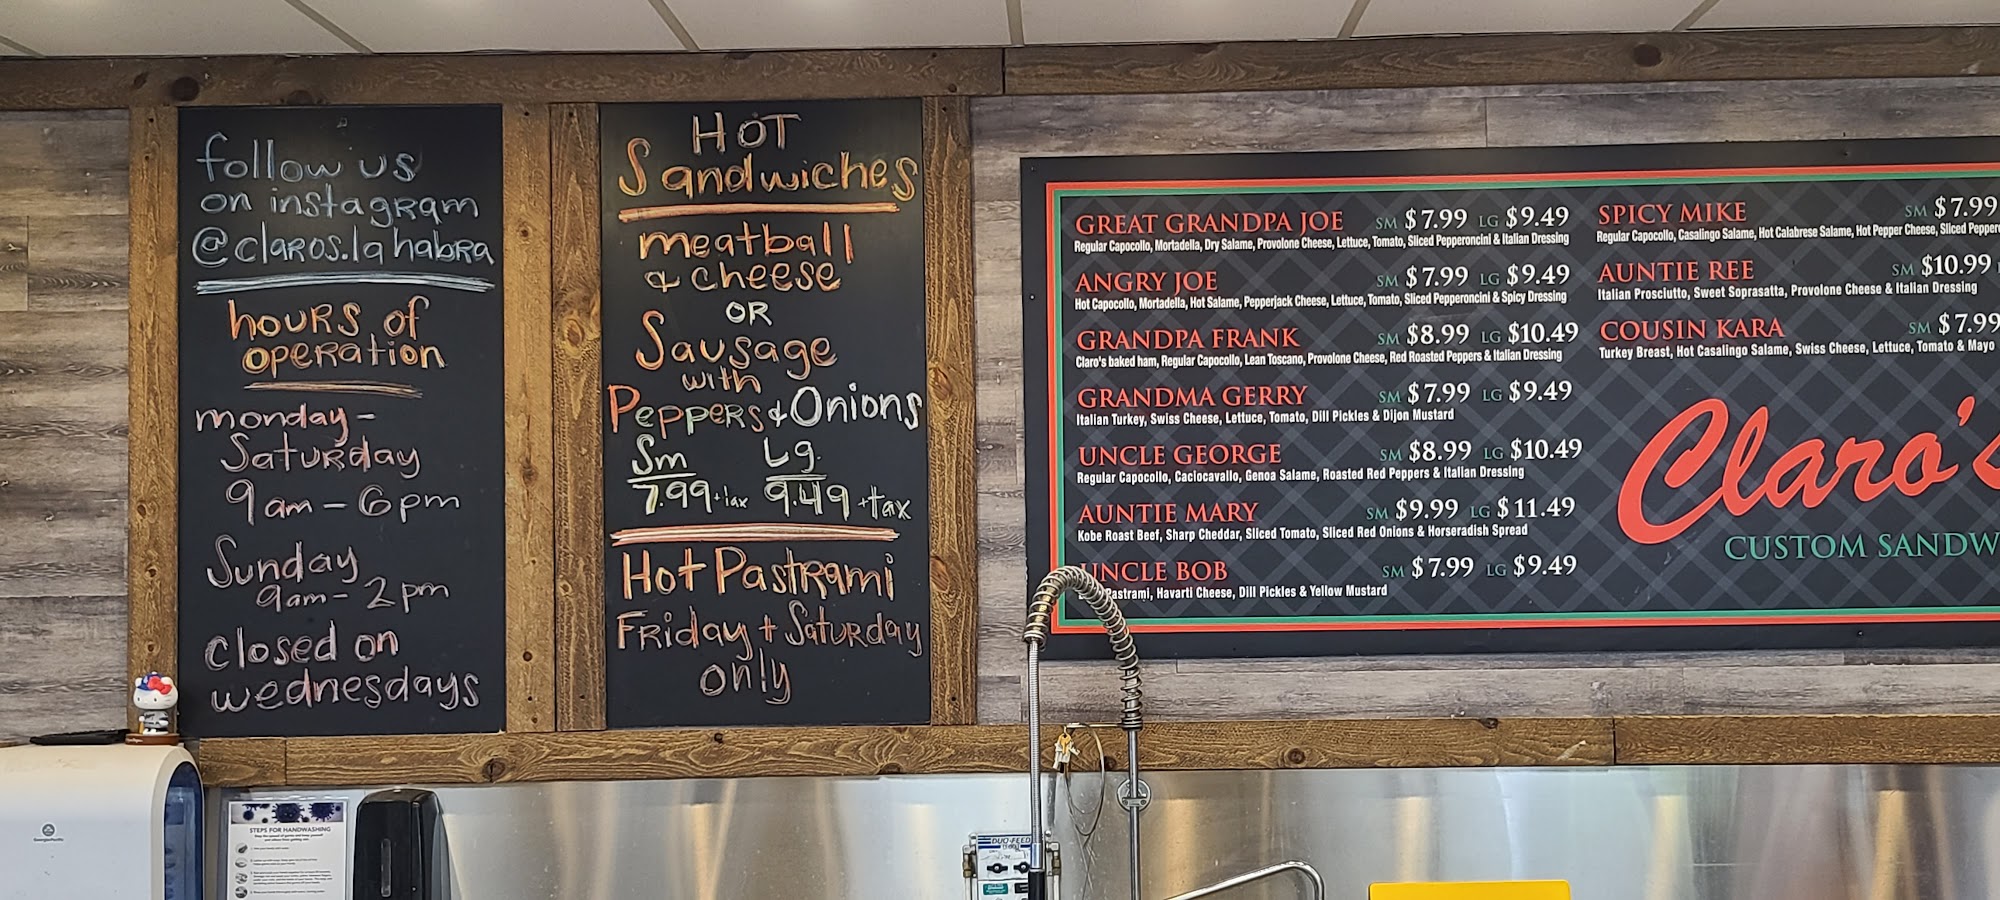 follow us
on instagram
@claros.lahabra
hours of
operation
monday -
Saturday
9am - 6pm
Sunday
9am - 2pm
closed on
wednesdays
HOT
Sandwiches
meatball
& cheese
OR
Sausage
with
Peppers & Onions
Sm Lg.
7.99 + tax 9.49 + tax
Hot Pastrami
Friday + Saturday
only
GREAT GRANDPA JOE SM $7.99 LG $9.49
Regular Capocollo, Mortadella, Dry Salame, Provolone Cheese, Lettuce, Tomato, Sliced Pepperoncini & Italian Dressing
ANGRY JOE SM $7.99 LG $9.49
Hot Capocollo, Mortadella, Hot Salame, Pepperjack Cheese, Lettuce, Tomato, Sliced Pepperoncini & Spicy Dressing
GRANDPA FRANK SM $8.99 LG $10.49
Claro's baked ham, Regular Capocollo, Lean Toscano, Provolone Cheese, Red Roasted Peppers & Italian Dressing
GRANDMA GERRY SM $7.99 LG $9.49
Italian Turkey, Swiss Cheese, Lettuce, Tomato, Dill Pickles & Dijon Mustard
UNCLE GEORGE SM $8.99 LG $10.49
Regular Capocollo, Caciocavallo, Genoa Salame, Roasted Red Peppers & Italian Dressing
AUNTIE MARY SM $9.99 LG $11.49
Kobe Roast Beef, Sharp Cheddar, Sliced Tomato, Sliced Red Onions & Horseradish Spread
UNCLE BOB SM $7.99 LG $9.49
Pastrami, Havarti Cheese, Dill Pickles & Yellow Mustard
SPICY MIKE SM $7.99
Regular Capocollo, Casalingo Salame, Hot Calabrese Salame, Hot Pepper Cheese, Sliced Pepper
AUNTIE REE SM $10.99
Italian Prosciutto, Sweet Soprasatta, Provolone Cheese & Italian Dressing
COUSIN KARA SM $7.99
Turkey Breast, Hot Casalingo Salame, Swiss Cheese, Lettuce, Tomato & Mayo
Claro's
CUSTOM SANDW
Georgia-Pacific
STEPS FOR HANDWASHING
DUO-FEED